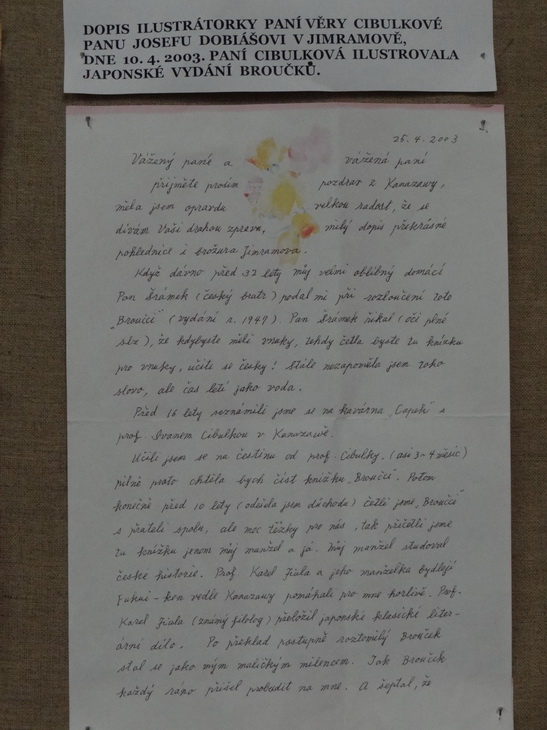 DOPIS ILUSTRÁTORKY PANÍ VĚRY CIBULKOVÉ
PANU JOSEFU DOBIÁŠOVI V JIMRAMOVĚ,
DNE 10. 4. 2003. PANÍ CIBULKOVÁ ILUSTROVALA
JAPONSKÉ VYDÁNÍ BROUČKŮ.
25. 4. 2003
Vážený pane a vážená paní
přijměte prosím pozdrav z Kanazawy,
měla jsem opravdu velkou radost, že se
dívám Vaši drahou zprava, milý dopis překrásné
pohlednice i brožura Jimramova.
Když dávno před 32 lety můj velmi oblíbný domácí
Pan Šrámek (český bratr) podal mi při rozloučení toto
„Broučci" (vydání r. 1949). Pan Šrámek říkal (oči plné
slz), že kdybyste měli vnuky, tehdy četla byste tu knížku
pro vnuky, učíte se česky! Stále nezapoměla jsem toho
slovo, ale čas letí jako voda.
Před 16 lety seznámili jsme se na kavárna „Čapek" s
prof. Ivanem Cibulkou v Kanazawě.
Učili jsem se na čestinu od prof. Cibulky. (asi 3-4 měsíc)
pilně proto chtěla bych číst knížku „Broučci". Potom
konečně před 10 lety (odešla jsem důchodu) četli jsme „Broučci"
s přateli spolu, ale moc těžky pro nás, tak přečtěli jsme
tu knížku jenom můj manžel a já. Můj manžel studoval
české historie. Prof. Karel Fiala a jeho manželka bydlejí
Fukui-ken vedle Kanazawy pomáhali pro mne horlivě. Prof.
Karel Fiala (známý filolog) přeložil japonské klasické liter-
ární dílo. Po překlad postupně roztomilý Brouček
stal se jako mým maličkým milencem. Tak Brouček
každý ráno přišel probudit na mne. A šeptal, že